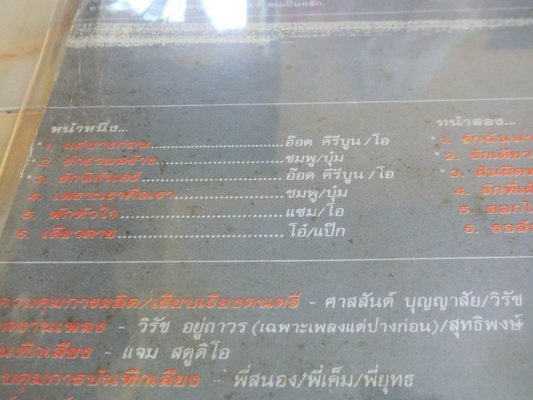 หน้าหนึ่ง...
1. แต่ปางก่อน..............................อ๊อด คีรีบูน/โอ
2. รักร่วมสร้าง..............................ชมพู/บุ๋ม
3. อ๊อด คีรีบูน/โอ
4. เพราะเราคือเรา..............................ชมพู/บุ๋ม
5. พักหัวใจ..............................แซม/โอ
6. เดียวดาย..............................โอ๋/แป๊ก
หน้าสอง...
1.
2. รักเดียว
3.
4. รักที่
5. ดอกไ
6. รอ
ควบคุมการผลิต/เรียบเรียงดนตรี - ศาสสันต์ บุญญาสัย/วิรัช
- วิรัช อยู่ถาวร (เฉพาะเพลงแต่ปางก่อน)/สุทธิพงษ์
บันทึกเสียง - แจม สตูดิโอ
บคุมการบันทึกเสียง - พี่สนอง/พี่เค็ม/พี่ยุทธ